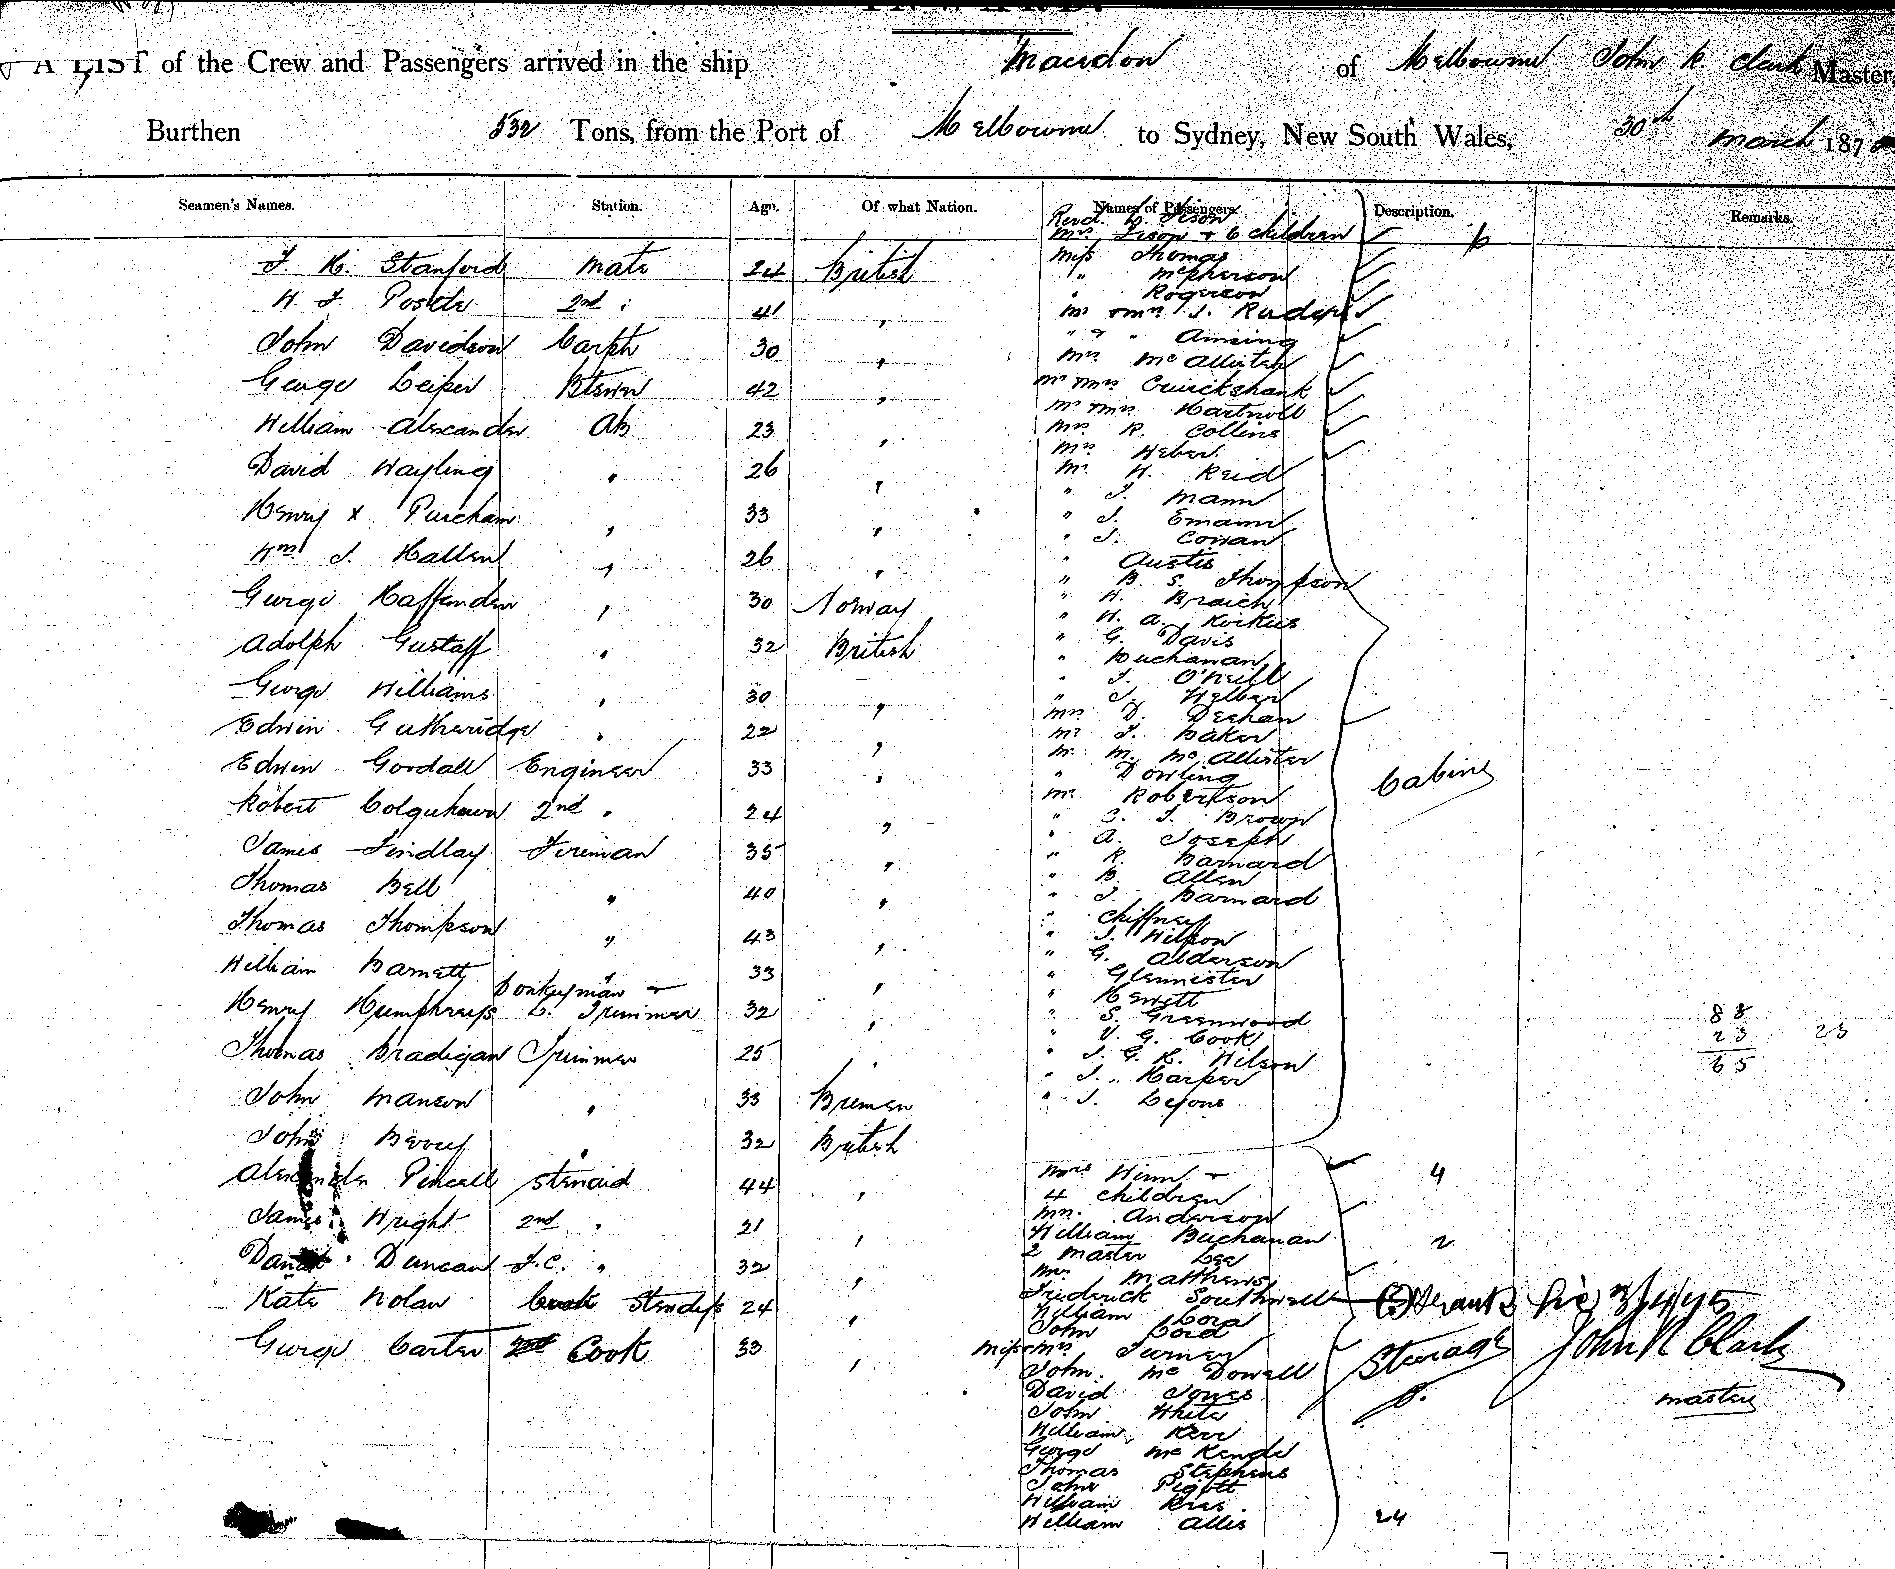 A LIST of the Crew and Passengers arrived in the ship Macedon of Melbourne John R Clark Master,
Burthen 532 Tons, from the Port of Melbourne to Sydney, New South Wales, 30th March 187
Seamen's Names. Station. Age. Of what Nation. Names of Passengers. Description. Remarks.
Mrs & 6 children 6
J. H. Stanford Mate 24 British
Miss Thomas
" McPherson
" Rogerson
2nd " 41 "
John Davidson Carptr 30 "
Mrs McAllister
George Leiper Btswn 42 "
Mr Mrs Cruickshank
Mr Mrs Hartnoll
William Alexander AB 23 "
Mrs R. Collins
Mrs Heber
David Wayling " 26 "
Mr H. Reid
" J. Mann
Henry x Purcham " 33 "
" J. Emann
" J. Cowan
Wm J. Hallen " 26 "
" Austis
" B. S. Thompson
George Haffenden " 30 Norway
" H. Braich
" H. A.
" G. Davis
Adolph Gustaff " 32 British
" Buchanan
" J. O'Neill
George Williams " 30 "
Mrs D. Deehan
Edwin Gutheridge " 22 "
Mr J. Baker
Mr M. McAllister
Edwin Goodall Engineer 33 "
" Dowling
Cabins
Mr Robertson
Robert Colquhoun 2nd " 24 "
" J. Brown
" A. Joseph
James Findlay Fireman 35 "
" R. Barnard
" B. Allen
Thomas Bell " 40 "
" J. Barnard
" Chiffney
Thomas Thompson " 43 "
" J. Wilson
" G. Alderson
William Barnett " 33 "
" Glennister
" Hewett
Donkeyman &
Henry Humphreys L. Trimmer 32 "
" S. Greenwood
88
" V. G. Cook
23 23
Thomas Bradigan Trimmer 25 "
" J. G. R. Wilson
65
" J. Harper
John Manson " 33 Bremen
" J. Lejons
John Berry " 32 British
Mrs Winn &
4
Alexander Pincall Steward 44 "
4 children
James Wright 2nd " 21 "
Mrs Anderson
William Buchanan 2
2 Master Lee
Duncan F.C. " 32 "
Mrs Matthews
Frederick Southwell
Kate Nolan Stewdess 24 "
William Cord
John Cord
George Carter Cook 33 "
Miss Mrs Turner Steerage John R Clark
John McDowell
David Jones
master
John White
William Kerr
George McKenzie
Thomas Stephens
John Pigott
William
William Allis 24